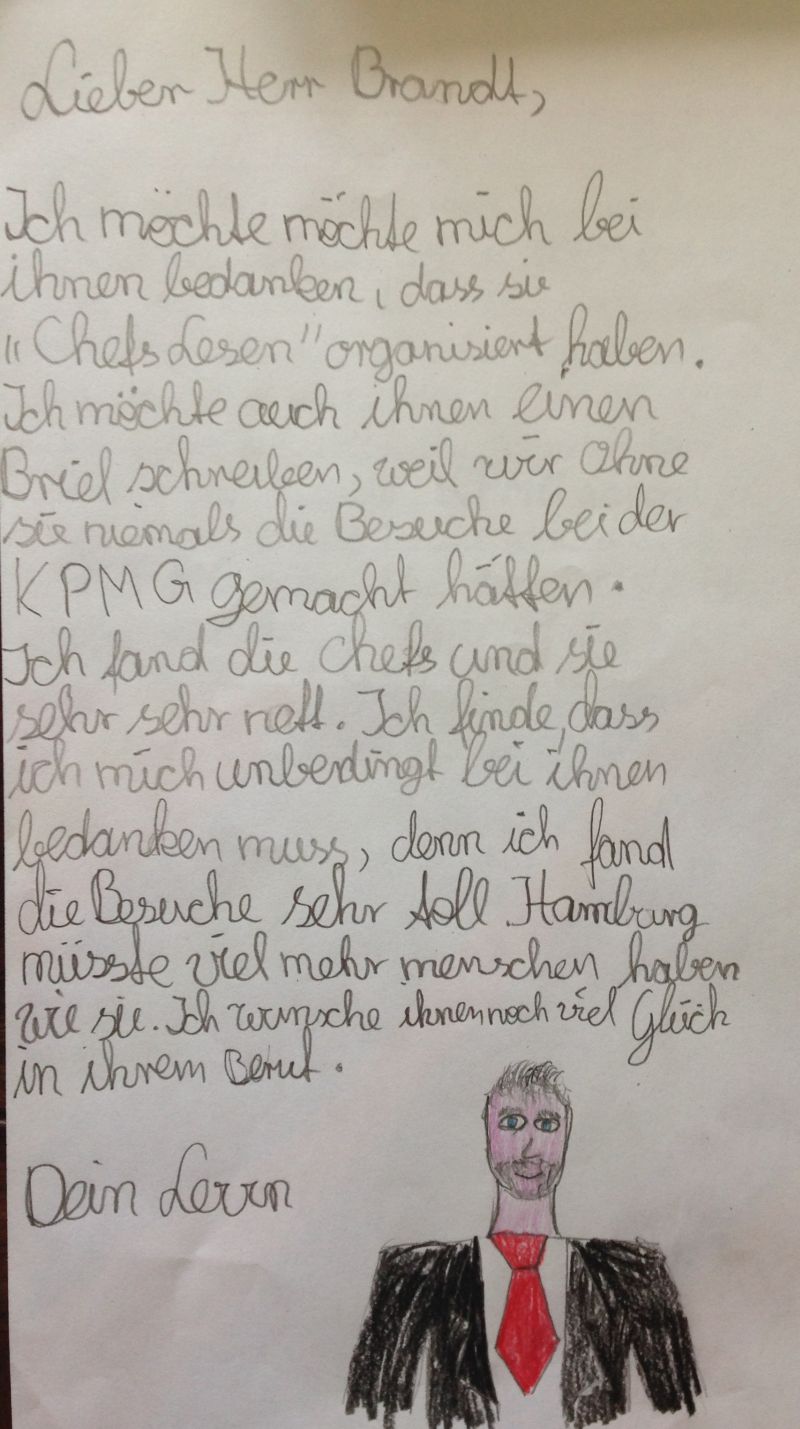 Lieber Herr Brandt,
Ich möchte möchte mich bei
ihnen bedanken, dass sie
"Chefs Lesen" organisiert haben.
Ich möchte auch ihnen einen
Brief schreiben, weil wir Ohne
sie niemals die Besuche bei der
KPMG gemacht hätten.
Ich fand die Chefs und sie
sehr sehr nett. Ich finde, dass
ich mich unbedingt bei ihnen
bedanken muss, denn ich fand
die Besuche sehr toll Hamburg
müsste viel mehr menschen haben
wie sie. Ich wünsche ihnen noch viel Glück
in ihrem Beruf.
Dein